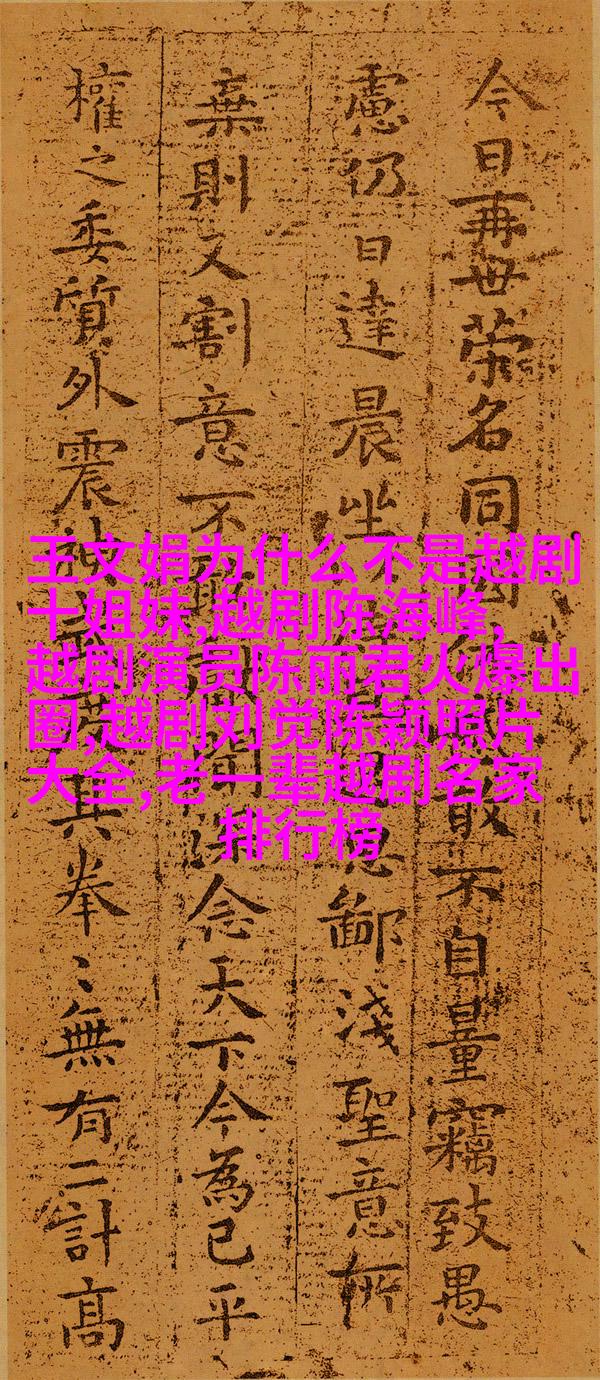 今日再世荣名同國敢不自量竊致愚
慮仍日達晨坐思鄙淺聖意所
棄則又割意不敢聞深念天下今為已平
權之委質外震神其拳〻無有二計高
王文娟为什么不是越剧
十姐妹,越剧陈海峰,
越剧演员陈丽君火爆出
圈,越剧刘觉陈颖照片
大全,老一辈越剧名家
排行榜